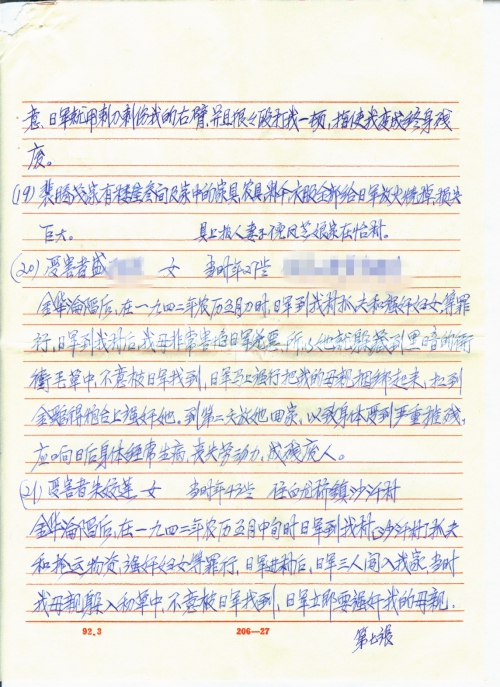 意、日军就用刺刀刺伤我的右臂，并且狠々殴打我一顿，指使我变成终身残
废。
(19) 家有楼屋叁间及家中的家具农具、粮食衣服全部给日军放火烧掉，损失
巨大。 具上报人妻子 娘家在怡村。
(20) 受害者盛 女 当时年27岁
金华沦陷后，在一九四二年农历五月初时，日军到我村抓夫和强奸妇女等罪
行，日军到我村后，我母非常害怕日军凶恶，所以她就躲藏到黑暗的
毛草中，不意被日军找到，日军马上强行把我的母亲捆绑起来，拉到
台上强奸她。到第二天放她回家，以致身体受到严重摧残，
应响日后身体经常生病，丧失劳动力，成残废人。
(21) 受害者朱 莲 女 当时年43岁 住白龙桥镇沙汀村
金华沦陷后，在一九四二年农历五月中旬时日军到我村沙汀村抓夫
和抢运物资，强奸妇女等罪行，日军进村后，日军三人闯入我家，当时
我母亲躲入 草中，不意被日军找到，日军立即要强奸我的母亲，
92.3 206—27
第七张